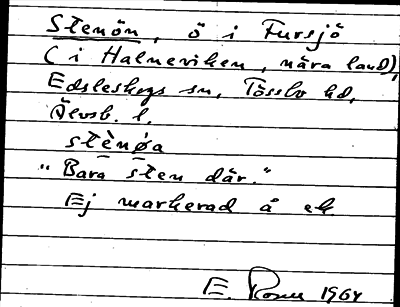 Stenön, ö i Fursjö
(i Halneviken, nära land),
Edsleskogs sn, Tösslo hd,
Älvsb. l.
stènøa
"Bara sten där."
Ej markerad å ek
E. 1964